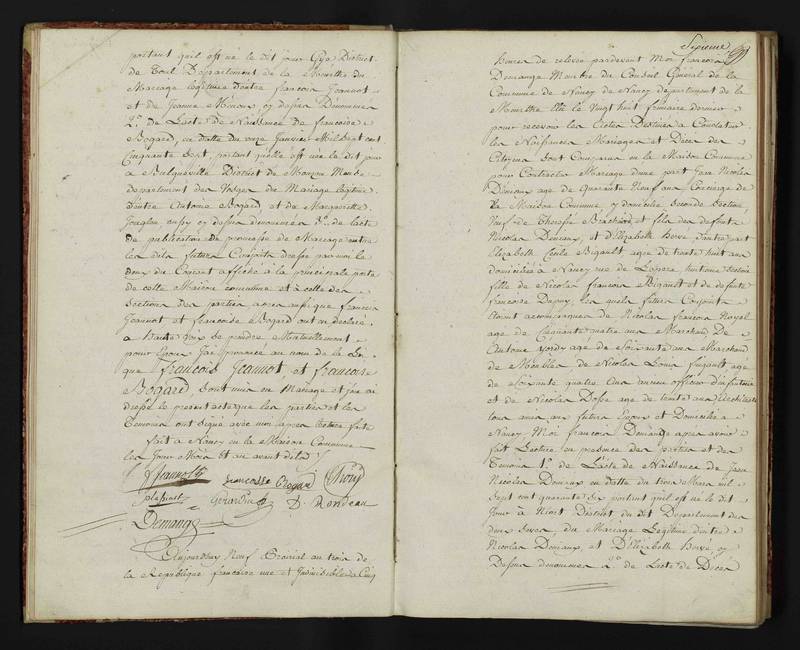 portant quil est né le dit jour Gye District
de Toul Département de la Meurthe du
Mariage légitime d'entre françois Jeannot
et de Jeanne Menoux cy dessus Dénommés
2.° de l'acte de Naissance de françoise
Bogard, en datte du onze Janvier Mil Sept cent
Cinquante Sept, portant quelle est née le dit jour
à Bulgnéville District de Mouzon Meuse
département des Vosges du Mariage légitime
d'entre Antoine Bogard et de Marguerite
aussy cy dessus dénommés 3.° de lacte
de publication de promesse de Mariage entre
les dits futurs Conjoints dressé par moi le
deux du Courant affiché à la principale porte
de cette Maison commune et à celle des
Sections des parties apres aussi que francois
Jeannot et francoise Bogard ont eu déclaré
a haute voix se prendre Mutuellement
pour Epoux Jai prononcé au nom de la Loi
que François Jeannot, et Françoise
Bogard, sont unis en Mariage et j'ai
dressé le present acte que les parties et les
Temoins ont signé avec moi apres lecture faite
fait à Nancy en la Maison Commune
les Jour Mois et an avant dits
f Jeannot francoise Bogard
D. Rondeau
Demange
Aujourdhuy Neuf Frimaire an trois de
la République francoise une et Indivisible à Cinq
Sixieme
heures de relevée pardevant Moi francois
Demange Membre du Conseil Général de la
Commune de Nancy de Nancy département de la
Meurthe élu le Vingt huit dernier
pour recevoir les Actes Destinés à Constater
les Naissances Mariages et Décès des
Citoyens Sont Comparus en la Maison Commune
pour Contracter Mariage d'une part Jean Nicolas
Demoux agé de Quarante Neuf ans Concierge de
la Maison Commune y domicilié Seconde Section,
Veuf de Therese Brichard et fils des defunts
Nicolas Demoux, et d'Elizabeth Hervé d'autre part
Elizabeth Cecile Bigault agée de trente huit ans
domiciliée à Nancy rue de huitieme Section
fille de Nicolas francois Bigault et de defunte
francoise Dupuy, les quels futurs Conjoints
étoient accompagnés de Nicolas francois Noyal
agé de Cinquante quatre ans Marchand De
Antoine agé de Soixante ans Marchand
de Meubles de Nicolas Louis agé
de Soixante quatre Ans ancien officier d'infanterie
et de Nicolas Dosse agé de trente ans Architecte
tous amis aux futurs Epoux et Domiciliés a
Nancy. Moi francois Demange apres avoir
fait Lecture en presence des parties et des
Temoins 1.° de L'acte de Naissance de Jean
Nicolas Demoux en datte du trois Mars mil
Sept cent quarante six portant quil est né le dit
Jour à Niort District du dit Département des
deux Sevres, du Mariage Légitime d'entre
Nicolas Demoux, et D'Elizabeth Hervé cy
Dessus denommés 2.° de Lacte de Décès